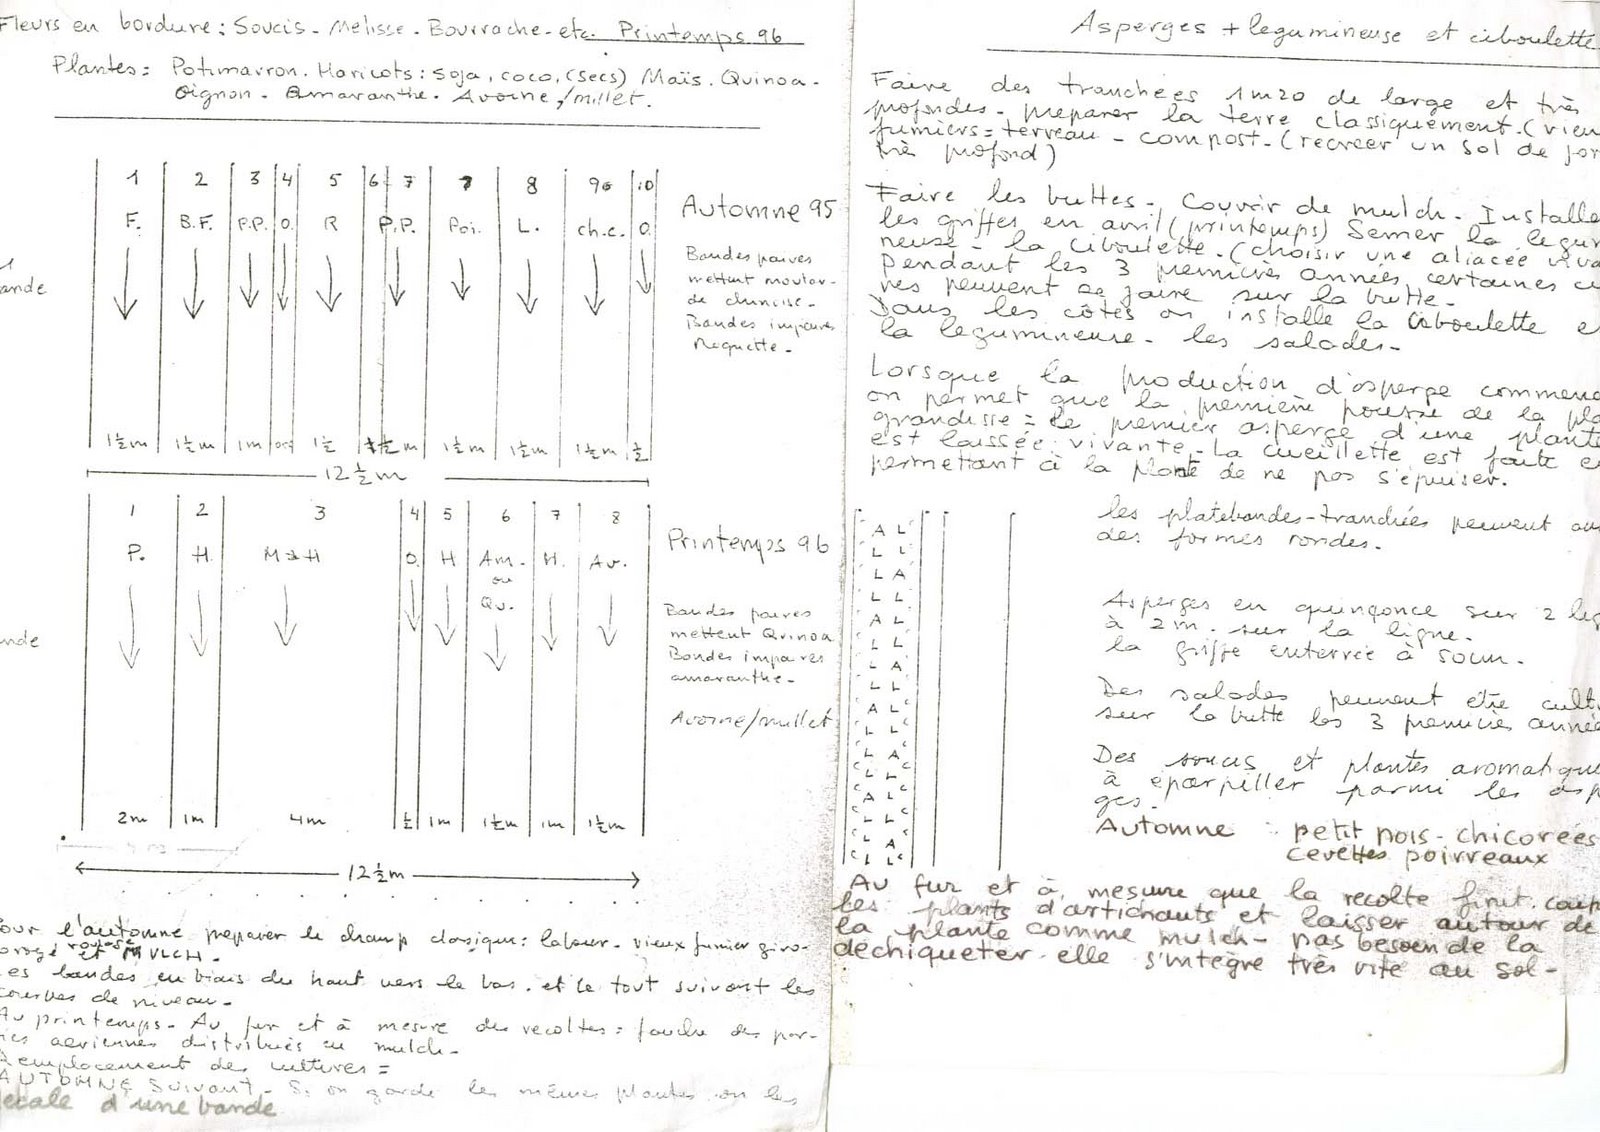 Fleurs en bordure: Soucis - Melisse - Bourrache - etc. Printemps 96
Plantes = Potimarron. Haricots: Soja, coco, (secs) Maïs. Quinoa.
Oignon - Amaranthe. Avoine/millet.
1 2 3 4 5 6 7 7 8 9 10
F. B.F. P.P. O. R P.P. Poi. L. ch.c. O.
Automne 95
Bandes paires
mettent moutar-
de chinoise.
Bandes impaires
Roquette.
1
ande
1½m 1½m 1m 1½ ½ m 1½m 1½m 1½m ½
12½m
1 2 3 4 5 6 7 8
P. H. M H O. H Am. H. Av.
ou
Qu.
Printemps 96
Bandes paires
mettent Quinoa
Bandes impaires
amaranthe.
Avoine/millet
nde
2m 1m 4m ½ 1m 1½m 1m 1½m
12½m
our l'automne preparer le champ classique: labour - vieux fumier giro-
et rotose MULCH.
es bandes en biais du haut vers le bas. et le tout suivant les
courbes de niveau.
Au printemps - Au fur et à mesure des recoltes = fauche des par-
ies aeriennes distribués en mulch.
Remplacement des cultures =
AUTOMNE suivant - Si on garde les mêmes plantes on les
ecale d'une bande
Asperges + legumineuse et ciboulette
Faire des tranchées 1m20 de large et très
profondes - preparer la terre classiquement. (vieu
fumiers = terreau - compost - (recréer un sol de for
très profond)
Faire les buttes - Couvrir de mulch - Installe
les griffes en avril (printemps) Semer la legum
neuse - la ciboulette. (choisir une aliacée viva
Pendant les 3 premières années certaines cu
res peuvent se faire sur la butte.
Dans les côtés on installe la ciboulette e
la legumineuse - les salades.
Lorsque la production d'asperge commenc
on permet que la première pousse de la pla
grandisse = le premier asperge d'une plante
est laissée vivante - La cueillette est faite e
permettant à la plante de ne pas s'épuiser.
A L
L L
L A
L L
A L
L L
L A
L L
A L
L L
L A
L L
A L
L L
L A
L L
les platebandes-tranchées peuvent av
des formes rondes.
Asperges en quinconce sur 2 lig
à 2m. sur la ligne.
la griffe enterrée à 50cm.
Des salades peuvent être culti
sur la butte les 3 premières année
Des soucis et plantes aromatique
à éparpiller parmi les asp
ges.
Automne petit pois - chicorées
cevettes poirreaux
Au fur et à mesure que la recolte finit. coup
les plants d'artichauts et laisser autour de
la plante comme mulch - pas besoin de la
dechiqueter - elle s'intègre très vite au sol -